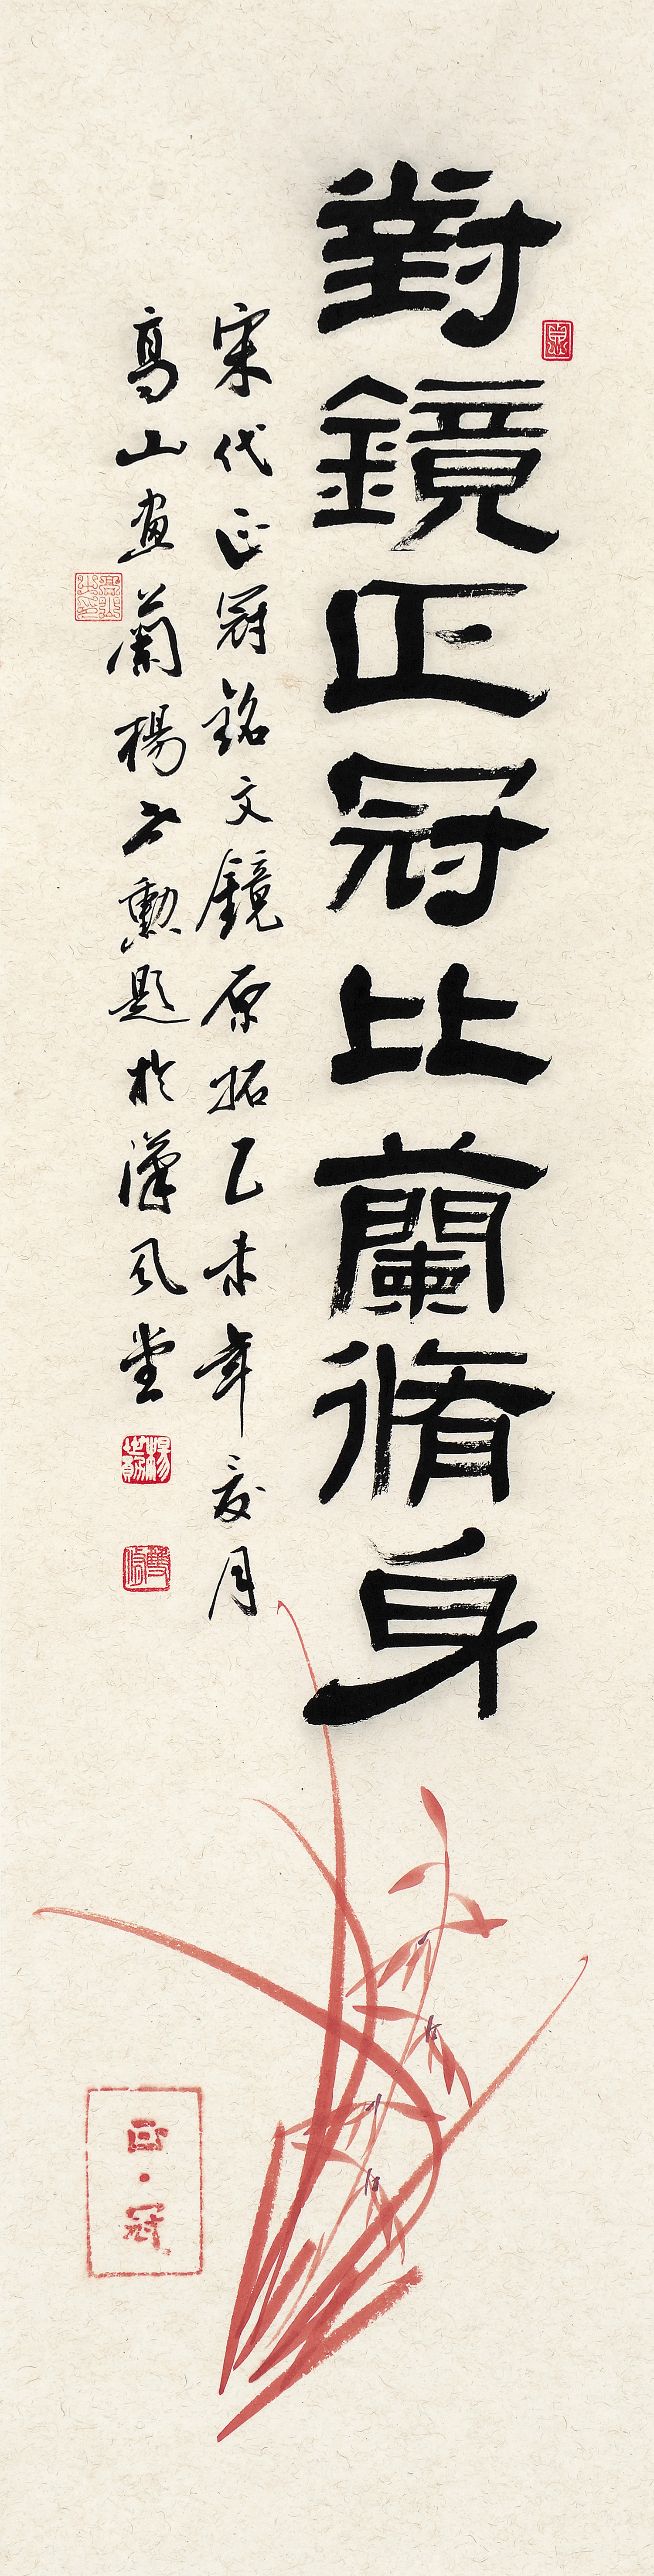 對鏡正冠比蘭脩身
宋代正冠銘文鏡原拓乙未年夏月
高山畫蘭楊士勳題於漢風堂
正·冠